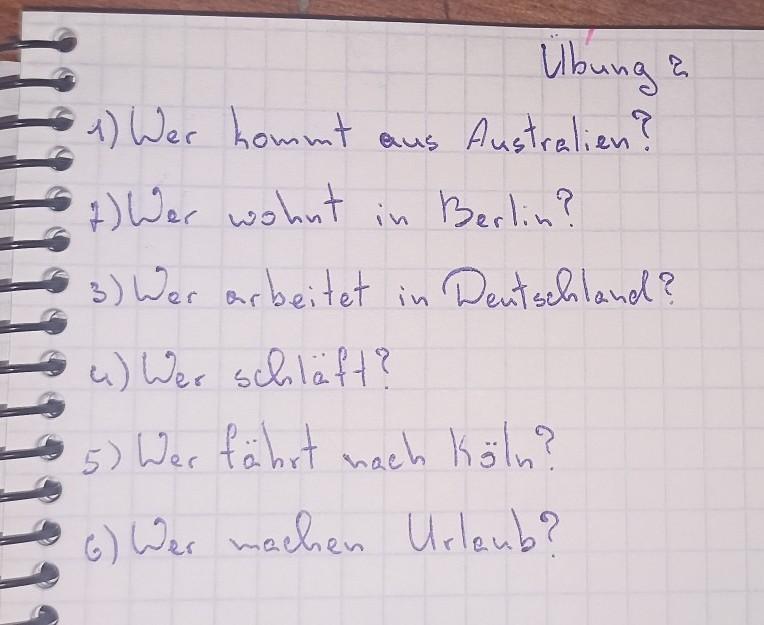 Übung 2
1) Wer kommt aus Australien?
2) Wer wohnt in Berlin?
3) Wer arbeitet in Deutschland?
4) Wer schläft?
5) Wer fährt nach Köln?
6) Wer machen Urlaub?